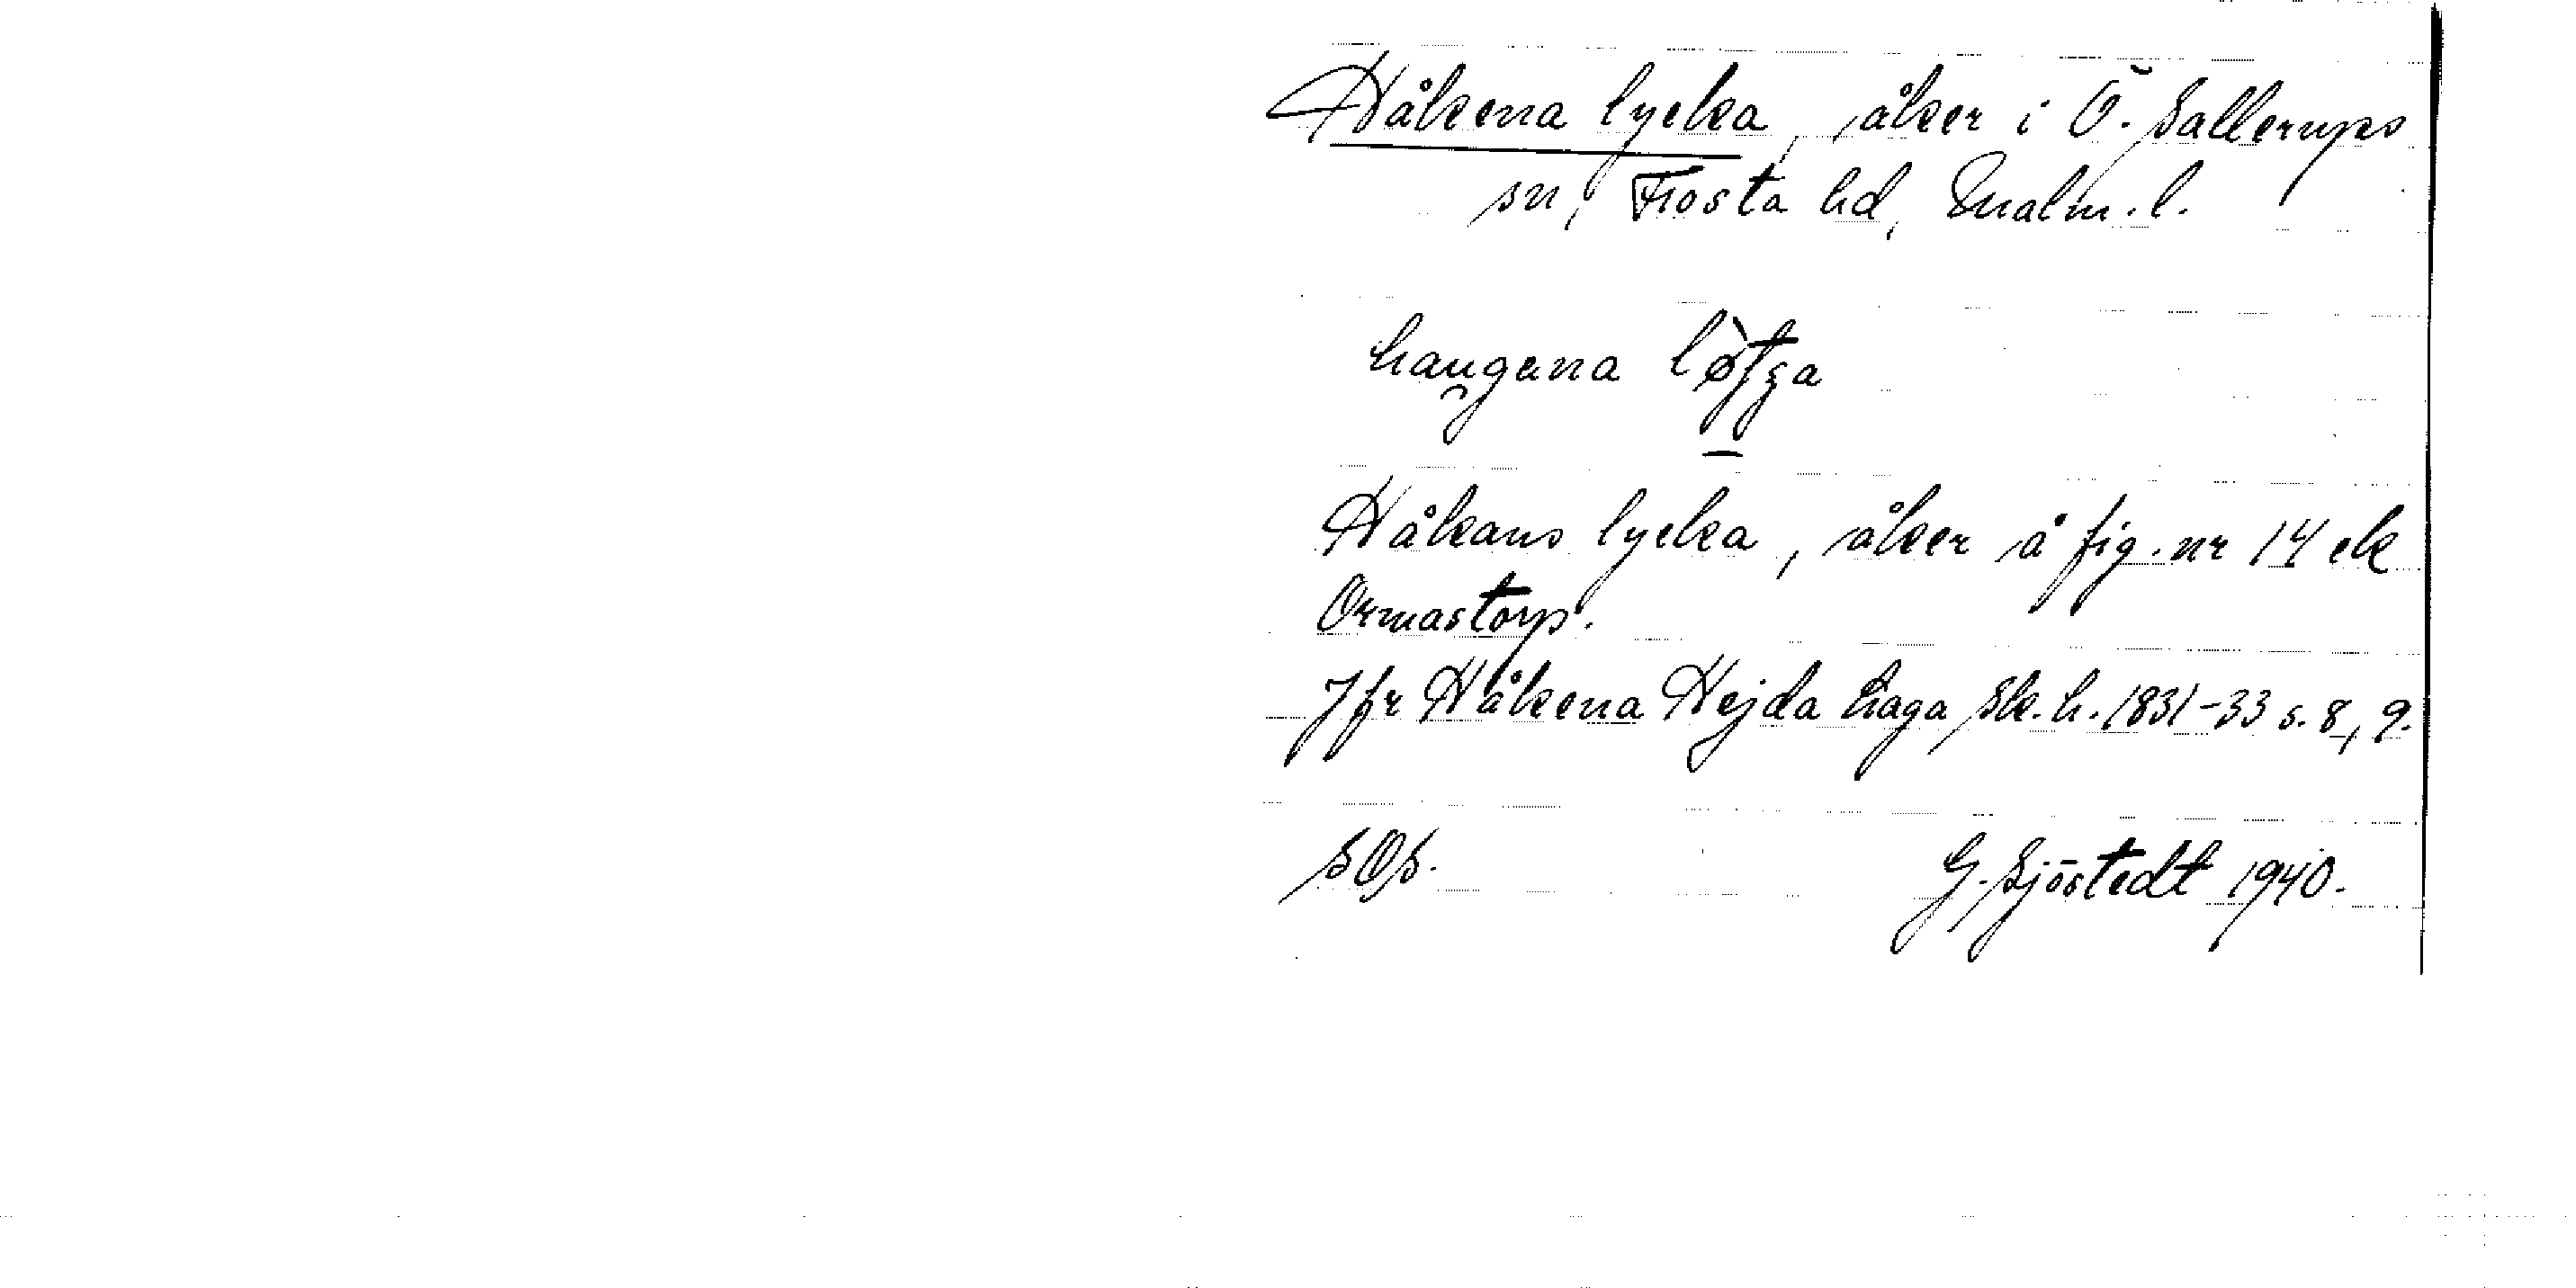 Håkena lycka, åker i Ö. Sallerups
sn, Frosta hd, Malm. l.
Håkans lycka, åker å fig. nr 14 ek
Ormastorp.
Jfr Håkena Hejda haga sk. h. 1831-33 s. 8, 9.
SOS.
G. Sjöstedt 1940.